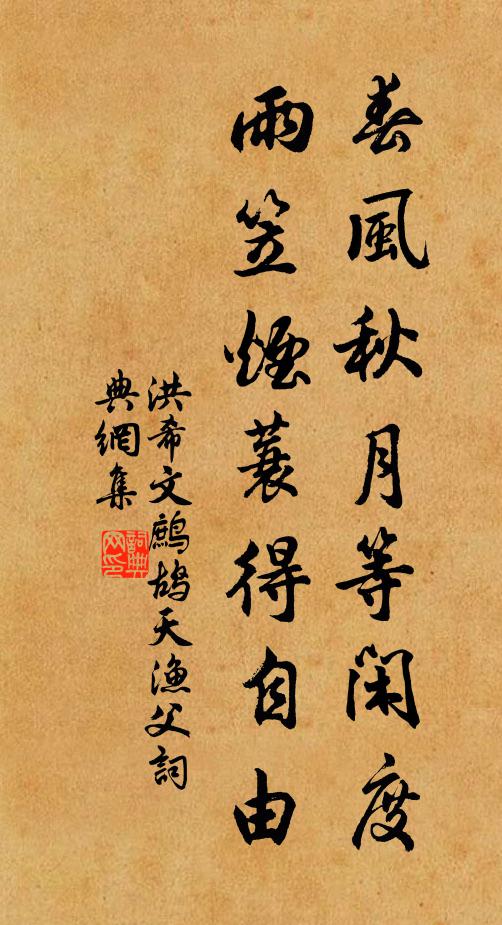 春風秋月等閑度
雨笠煙蓑得自由
洪希文鷓鴣天漁父詞
典網集
詞典网印